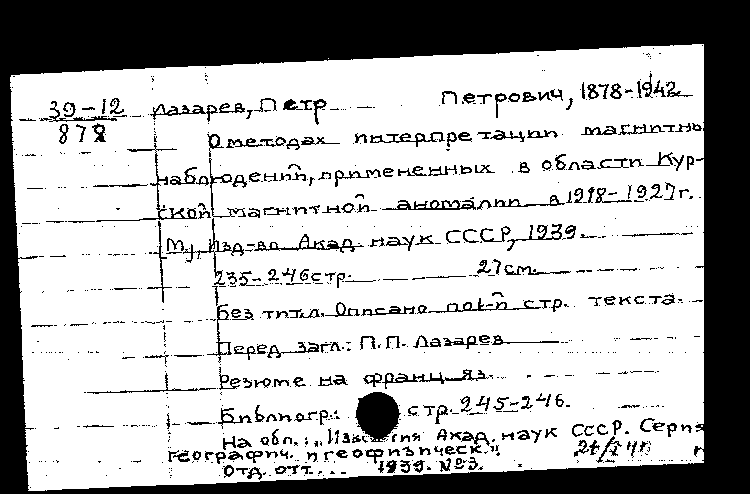 39-12 Лазарев, Петр Петрович, 1878-1942
878
О методах интерпретации магнитны
наблюдений, примененных в области Кур-
ской магнитной аномалии в 1918-1927 г.
[М.], Изд-во Акад. наук СССР, 1939.
235-246 стр. 27 см.
Без тит.л. Описано по 1-й стр. текста.
Перед загл.: П.П. Лазарев
Резюме на франц. яз.
Библиогр.: стр. 245-246.
На обл.: „Известия Акад. наук СССР. Серия
географич. и геофизическ."
Отд. отт... 1939. №3.